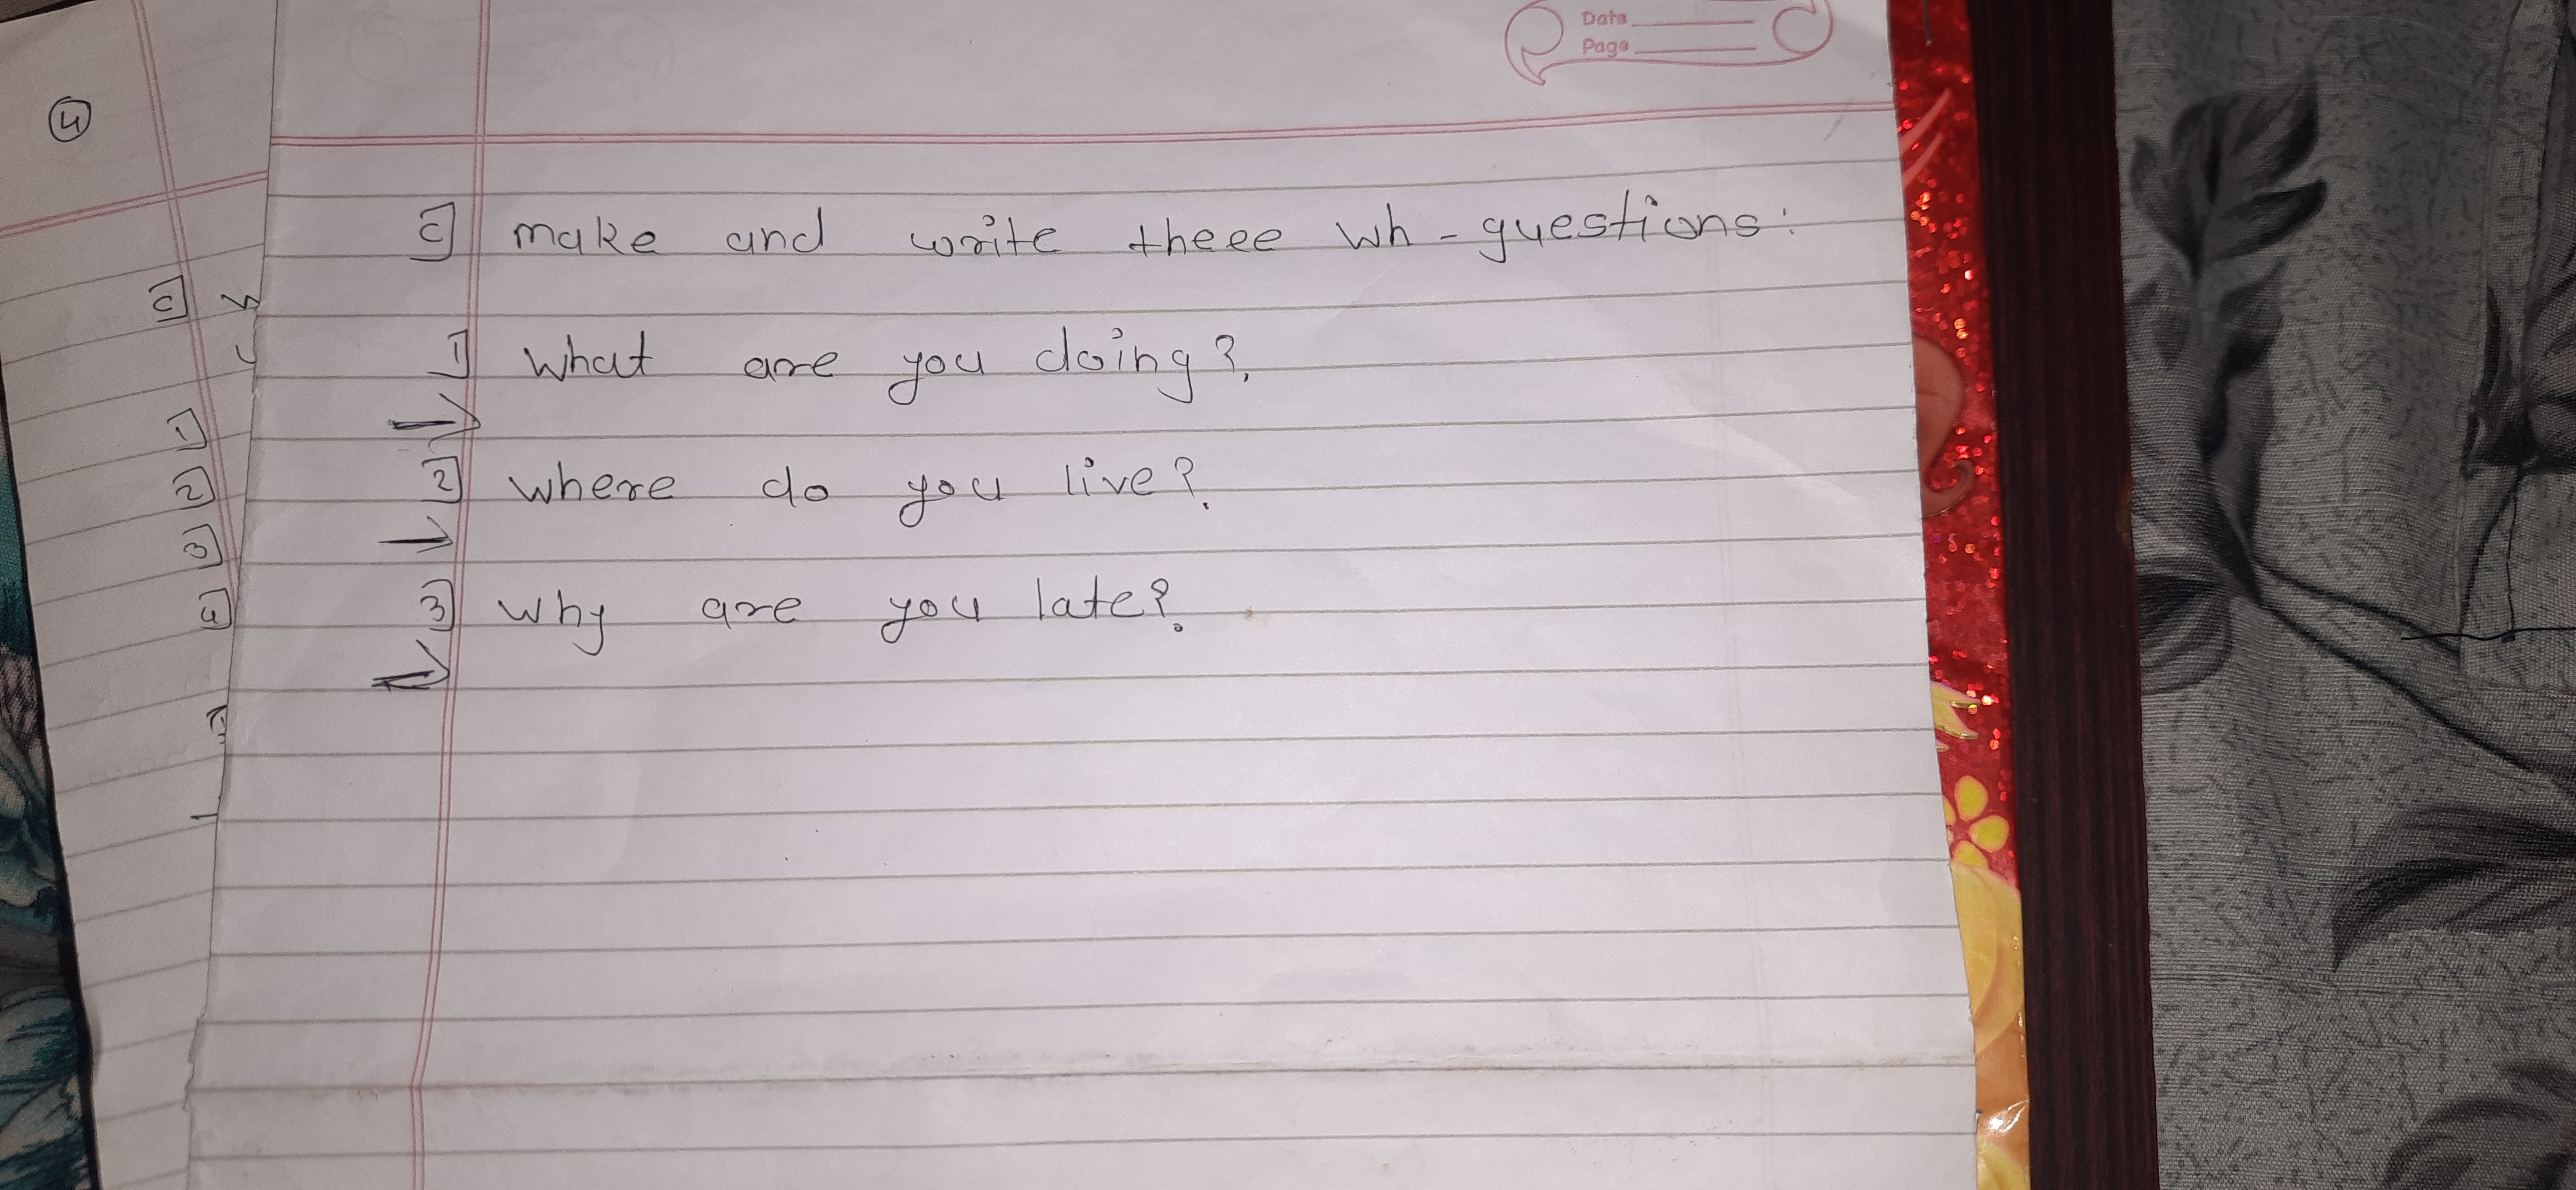 Data
Page
4
c] make and write theee wh - questions:
1] what are you doing?
2] where do you live?
3] why are you late?
c] w
1]
2]
3]
4]